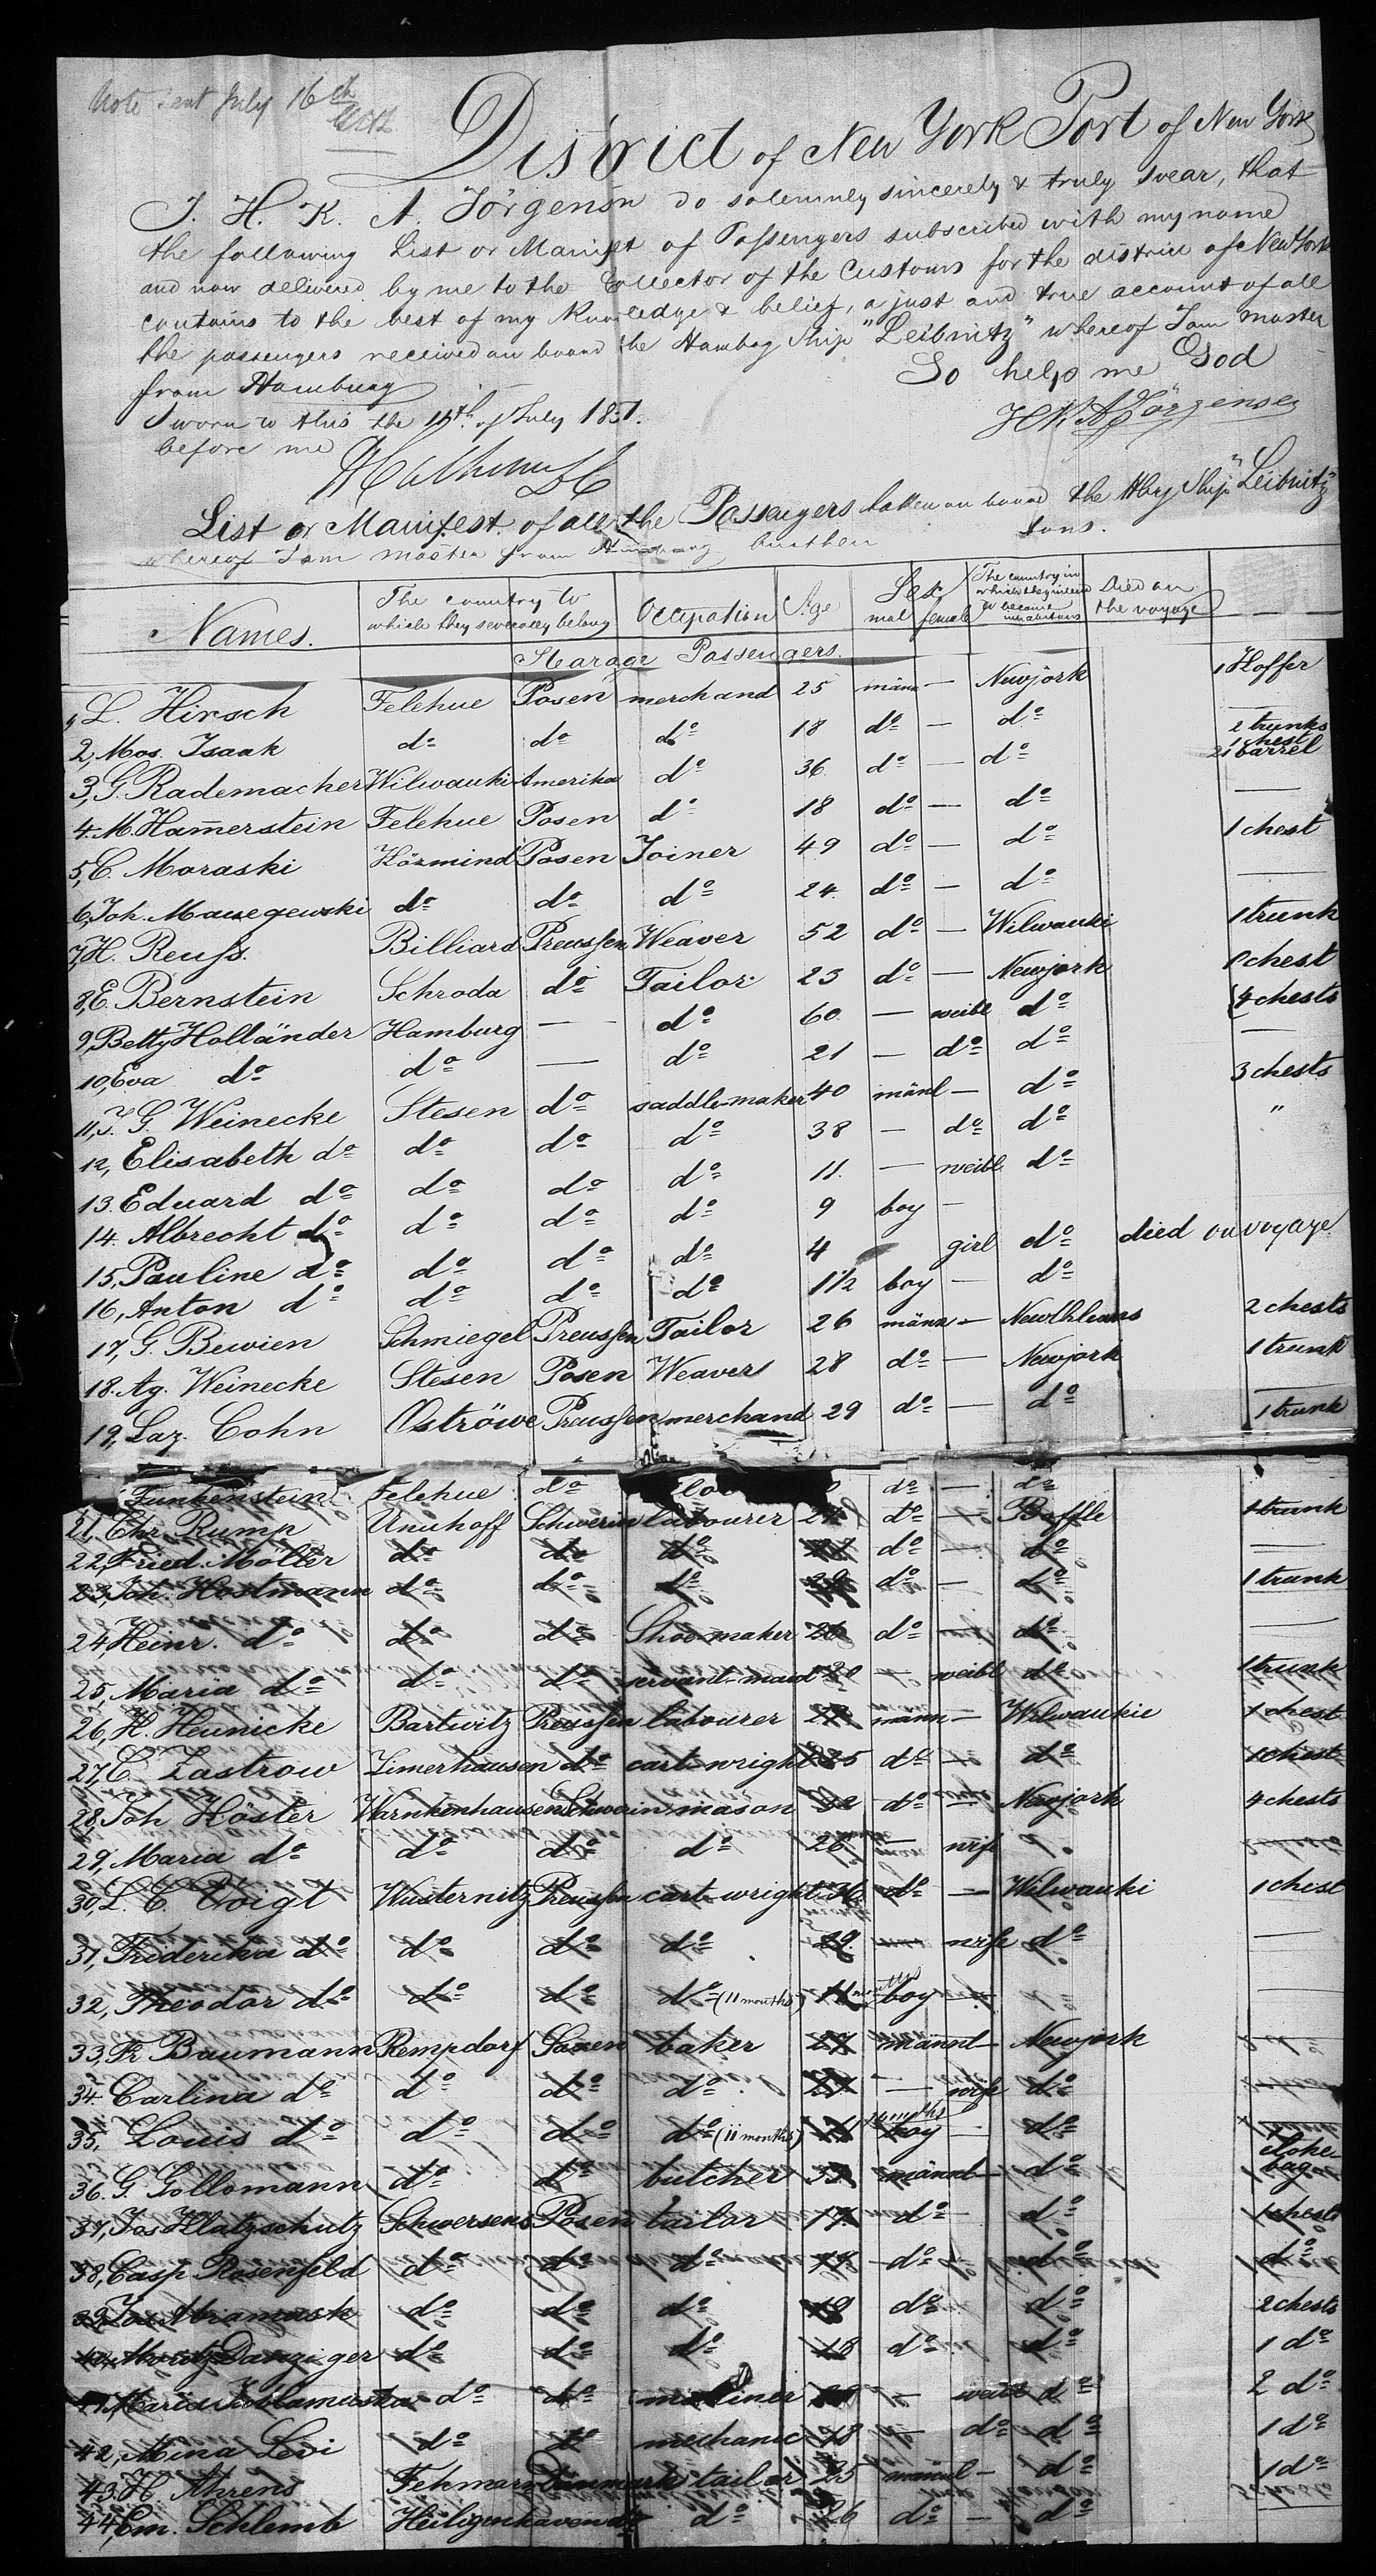 Note sent July 16th
District of New York Port of New York
I. H. K. A. Jörgensen do solemnly sincerely & truly swear, that
the following List or Manifest of Passengers subscribed with my name
and now delivered by me to the Collector of the Customs for the district of New York
contains to the best of my knowledge & belief, a just and true account of all
the passengers received on board the Hambog Ship "Leibnitz" whereof I am master
from Hamburg So help me God
Sworn to this the 15th of July 1851.
before me HKA Jörgensen
List or Manifest of all the Passengers taken on board the Hbg Ship "Leibnitz"
whereof I am master from Hamburg burthen tons.
Names. The country to which they severally belong Occupation Age Sex mal female The country in which they intend to become inhabitants Died on the voyage
Stearage Passengers.
1, L. Hirsch Felehue Posen merchand 25 männ — Newjork 1 Koffer
2, Mos. Isaak do do do 18 do — do 2 trunks
3, G. Rademacher Wilwauki Amerika do 36 do — do 1 chest 21 barrel
4. M. Hamerstein Felehue Posen do 18 do — do —
5, C. Moraski Kózmind Posen Joiner 49 do — do 1 chest
6, Joh. Mausegewski do do do 24. do — do —
7, H. Reuss. Billiard Preussen Weaver 52 do — Wilwauki 1 trunk
8, E. Bernstein Schroda do Tailor 23 do — Newjork 1 chest
9, Betty Holländer Hamburg — do 60 — weibl do 4 chests
10, Eva do do — do 21 — do do —
11, J. G. Weinecke Stesen do saddle-maker 40 mänl — do 3 chests
12, Elisabeth do do do do 38 — do do "
13. Eduard do do do do 11. — weibl do
14. Albrecht do do do do 9 boy —
15, Pauline do do do do 4 girl do died on voyage
16, Anton do do do do 1 1/2 boy — do
17, G. Bewien Schmiegel Preussen Tailor 26 männ — 2 chests
18. Ag. Weinecke Stesen Posen Weaver 28 do — Newjork 1 trunk
19, Laz. Cohn Oströwe Preussen merchand 29 do — do —
1 trunk
Funkenstein Felehue do do — do
21. Chr. Rump Unuhoff Schwerin labourer 24 do — Boffle 1 trunk
22, Fried. Möller do do do do — do —
23, Joh. Hostmann do do do do — do 1 trunk
24, Heinr. do do do Shoe-maker 26 do — do —
25, Maria do do do servant-maid 20 — weibl do 1 trunk
26, H. Heunicke Bartwitz Preussen labourer männ — Wilwaukie 1 chest
27, C. Zastrow Zimerhausen do cart-wright 25 do — do 1 chest
28, Joh Höster Warnkenhausen Schwerin mason 32 do — Newjork 4 chests
29, Maria do do do do 26 — wife do
30, L. C. Voigt Wusternitz Preussen cart-wright 36 do — Wilwauki 1 chest
31, Friderika do do do do 29. — wife do —
32, Theodor do do do do (11 months) 11 months boy — do —
33, Fr Baumann Rempdorf Saxen baker 27 männl — Newjork —
34. Carlina do do do do — wife do
35, Louis do do do do (11 months) 11 months boy — do
36. G. Gollomann do do butcher 33 männl — do bag
37, Jos Klatzschutz Schwersens Posen tailor 17 do — do 1 chest
38, Casp Rosenfeld do do do 18 do do do
39, Jos Abramask do do do do do 2 chests
40, Moritz Danziger do do do 18 do do 1 do
41, Maria do do milliner — weibl do 2 do
42, Mina Levi do do mechanic 18 — do do 1 do
43. H. Ahrens Fehmarn Danmark tailor 25 männl — do 1 do
44, Em. Schlemb Heiligenhaven do do 26 do — do